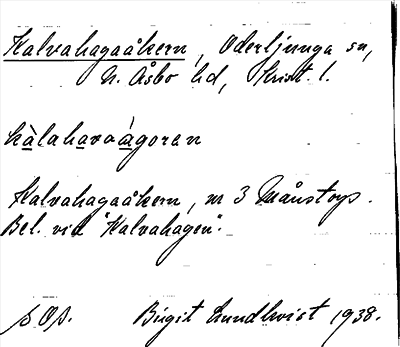 Kalvahagaåkern, Oderljunga sn,
N. Åsbo hd, Krist. l.
kàlahavaágoran
Kalvahagaåkern, nr 3 Månstorp.
Bel. vid "Kalvahagen".
Birgit Lundkvist 1938.